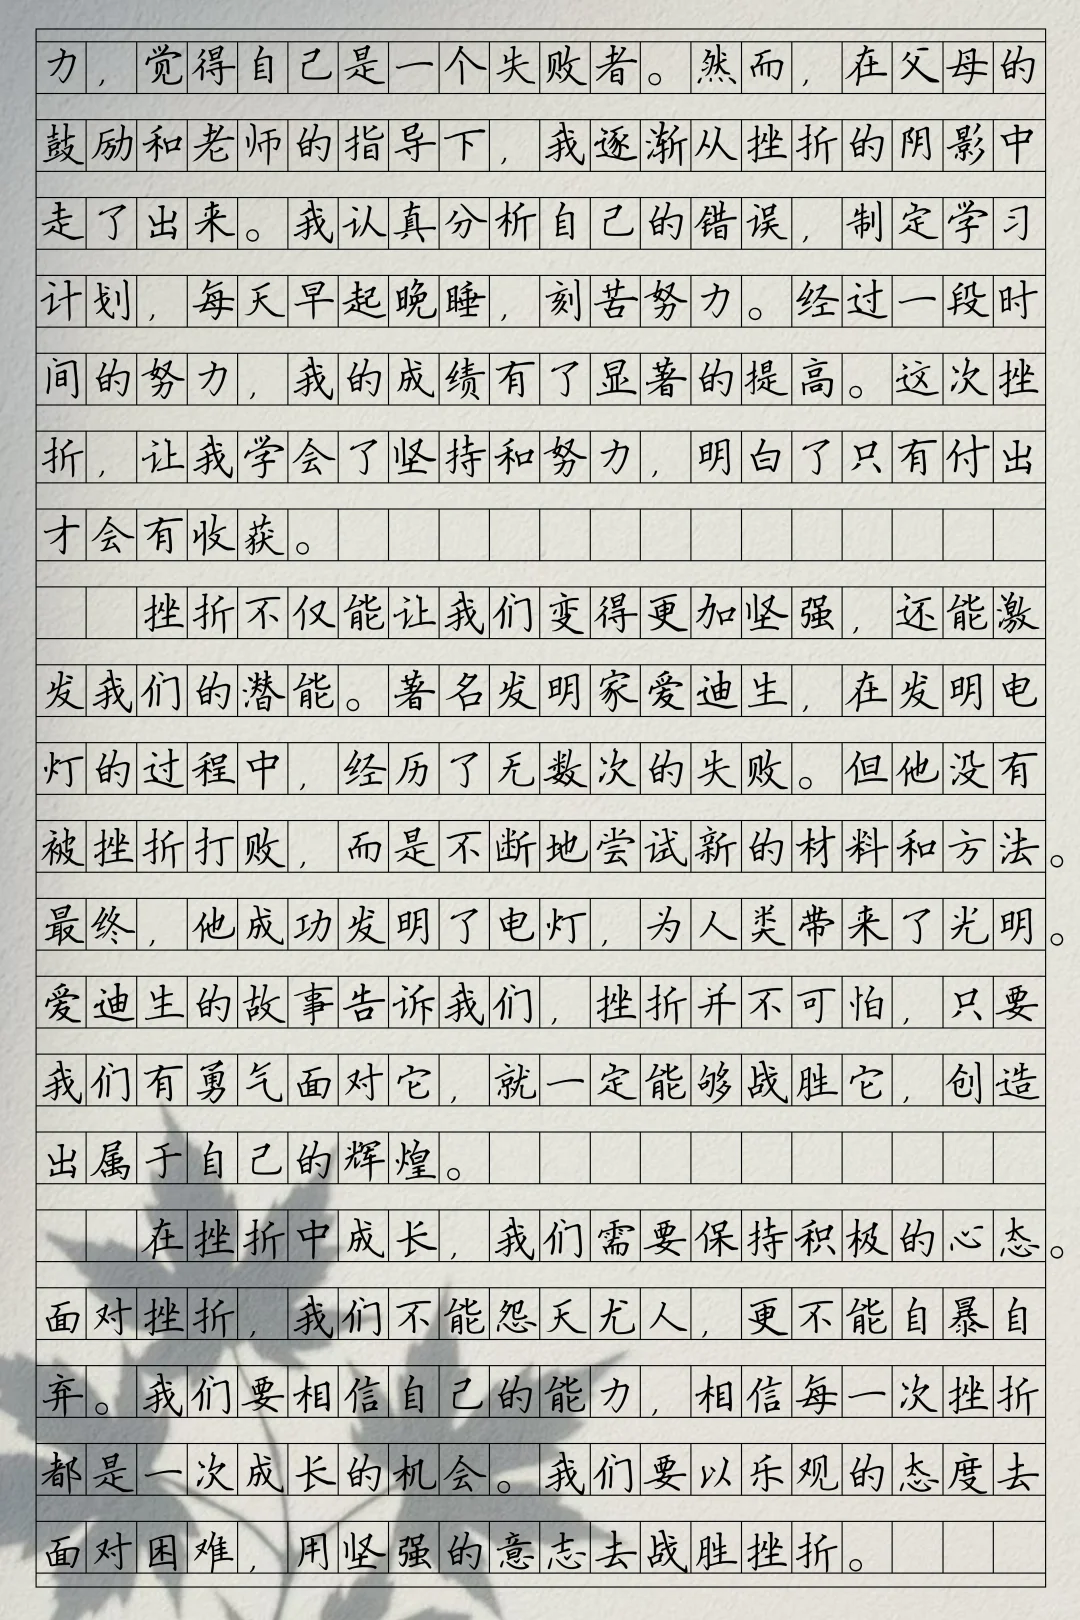 力，觉得自己是一个失败者。然而，在父母的
鼓励和老师的指导下，我逐渐从挫折的阴影中
走了出来。我认真分析自己的错误，制定学习
计划，每天早起晚睡，刻苦努力。经过一段时
间的努力，我的成绩有了显著的提高。这次挫
折，让我学会了坚持和努力，明白了只有付出
才会有收获。
挫折不仅能让我们变得更加坚强，还能激
发我们的潜能。著名发明家爱迪生，在发明电
灯的过程中，经历了无数次的失败。但他没有
被挫折打败，而是不断地尝试新的材料和方法。
最终，他成功发明了电灯，为人类带来了光明。
爱迪生的故事告诉我们，挫折并不可怕，只要
我们有勇气面对它，就一定能够战胜它，创造
出属于自己的辉煌。
在挫折中成长，我们需要保持积极的心态。
面对挫折，我们不能怨天尤人，更不能自暴自
弃。我们要相信自己的能力，相信每一次挫折
都是一次成长的机会。我们要以乐观的态度去
面对困难，用坚强的意志去战胜挫折。